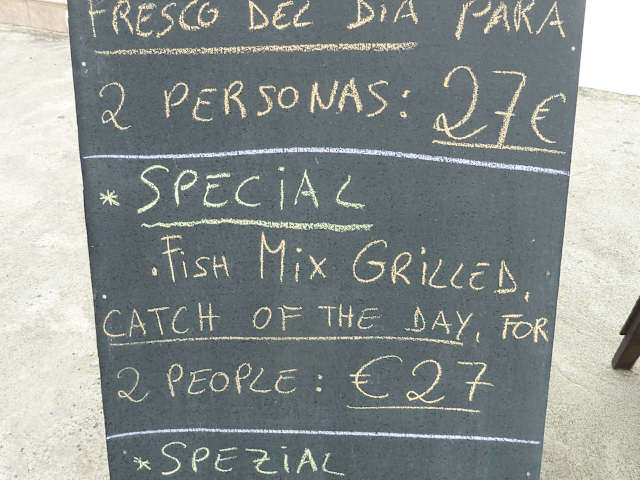 FRESCO DEL DIA PARA
2 PERSONAS: 27€
* SPECIAL
.FISH MIX GRILLED,
CATCH OF THE DAY, FOR
2 PEOPLE: €27
* SPEZIAL